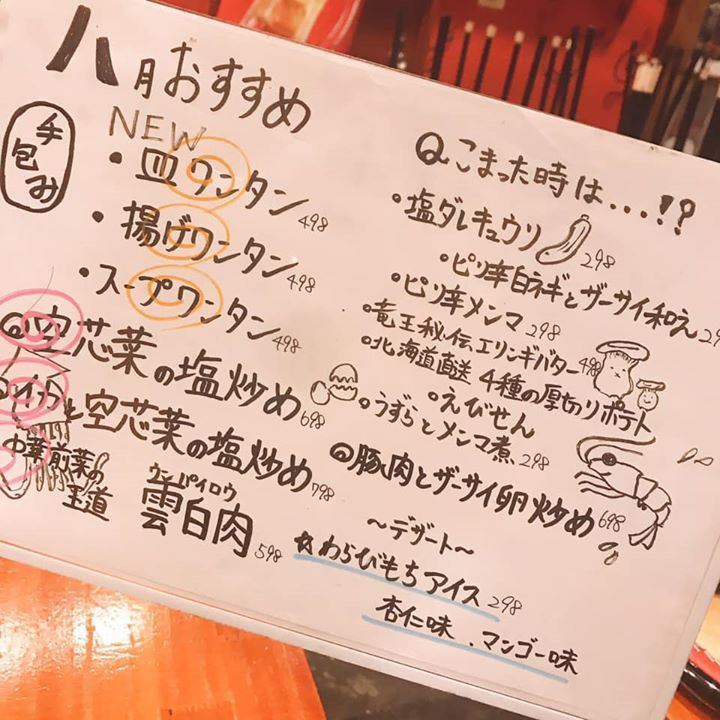 八月おすすめ
手包み
NEW
・皿ワンタン 498
・揚げワンタン 498
・スープワンタン 498
空芯菜の塩炒め 698
イカと空芯菜の塩炒め 798
中華前菜の王道
ウンパイロウ
雲白肉 598
Qこまった時は...!?
・塩ダレキュウリ 298
・ピリ辛白ネギとザーサイ和え 29
・ピリ辛メンマ 298
・竜王秘伝エリンギバター 498
・北海道直送 4種の厚切りポテト
・えびせん
・うずらとメンマ煮 298
豚肉とザーサイ卵炒め 698
〜デザート〜
☆わらびもちアイス 298
杏仁味、マンゴー味